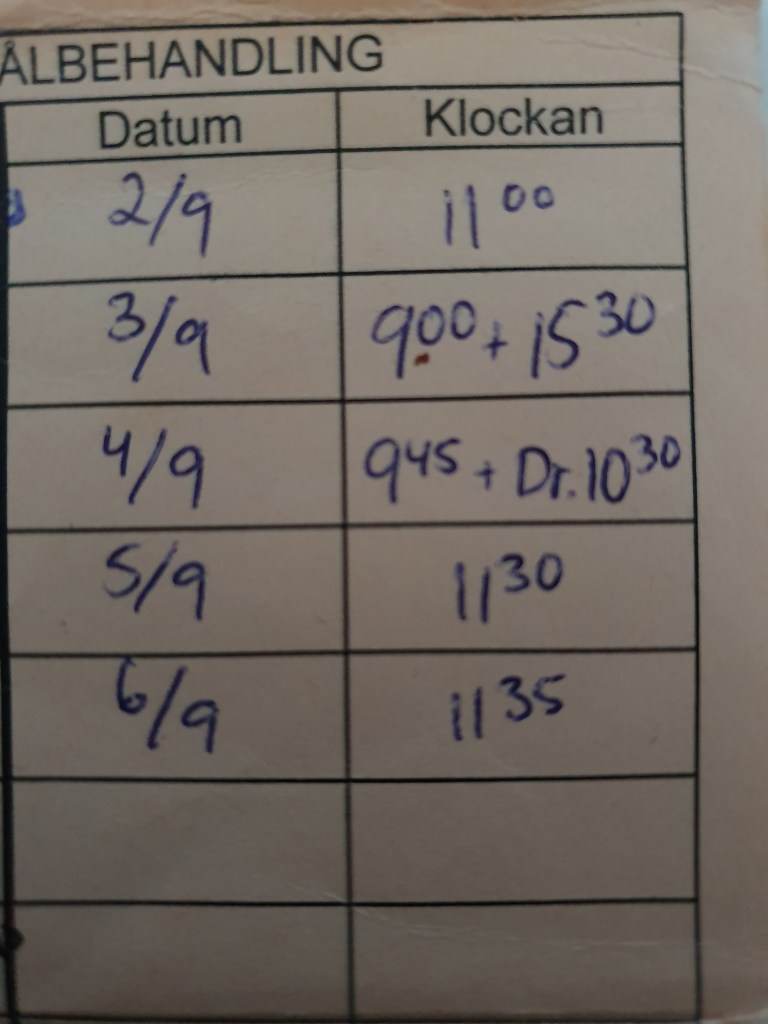 ÅLBEHANDLING
Datum Klockan
2/9 11 00
3/9 900 + 15 30
4/9 945 + Dr. 10 30
5/9 11 30
6/9 11 35